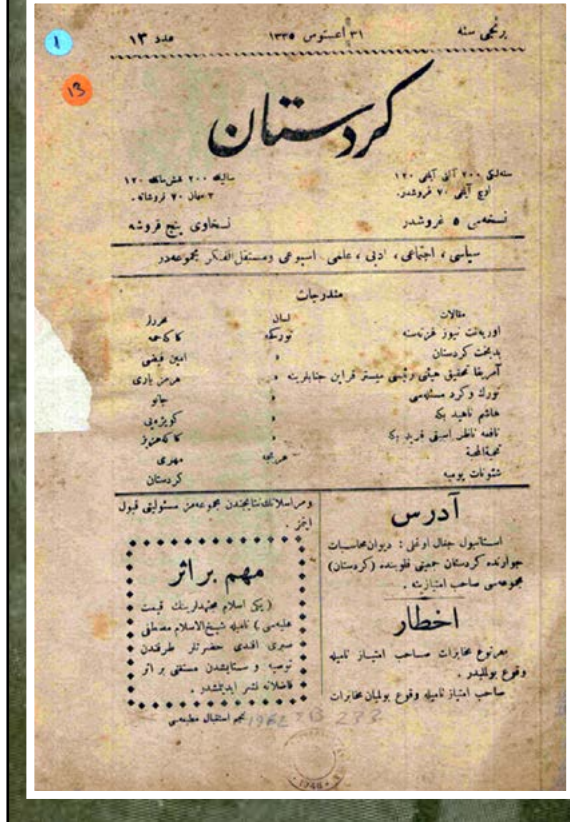 برنجی سنه
٣١ اغستوس ١٣٣٥
عدد ١٣
1
13
كردستان
سنه‌لكی ٢٠٠ آلتی آیلغی ١٢٠
اوچ آیلغی ٧٠ غروشدر.
نسخه‌سی ٥ غروشدر
سالیك ٢٠٠ شش مانك ١٢٠
٣ مهان ٧٠ قروشانه.
نسخاوی پنج قروشه
سیاسی ، اجتماعی ، ادبی ، علمی اسبوعی ومستقل الفكر مجموعه‌در
مندرجات
مقالات لسان محررلر
اوریه‌نت نیوز غزته‌سنه توركجه كاكه‌حمه
بدبخت كردستان » امین فیضی
آمریقا تحقیق هیئتی رئیسی میستر قراین جنابلرینه » هرمز یاری
تورك وكرد مسئله‌سی » جانو
هاشم ناهید بكه » كویزه‌یی
نافعه ناظر اسبقی فرید بكه » كاكه‌عزیز
محبةالمحبة عربجه مهری
شئونات یومیه كردستان
آدرس
استانبول جغال اوغلی : دیوان محاسبات
جوارنده كردستان جمعیتی قلوبنده (كردستان)
مجموعه‌سی صاحب امتیازینه .
اخطار
هرنوع مخابرات صاحب امتیاز نامیله
وقوع بولملیدر .
صاحب امتیاز نامیله وقوع بولمیان مخابرات
ومراسلاتك نتایجندن مجموعه‌مز مسئولیتی قبول
ایتمز .
مهم بر اثر
(یكی اسلام مجتهدلرینك قیمت
علمیه‌سی) نامیله شیخ‌الاسلام مصطفی
صبری افندی حضرتلری طرفندن
توصیه و ستایشدن مستغنی بر اثر
فاضلانه نشر ایدیلمشدر .
نجم استقبال مطبعه‌سی
1962